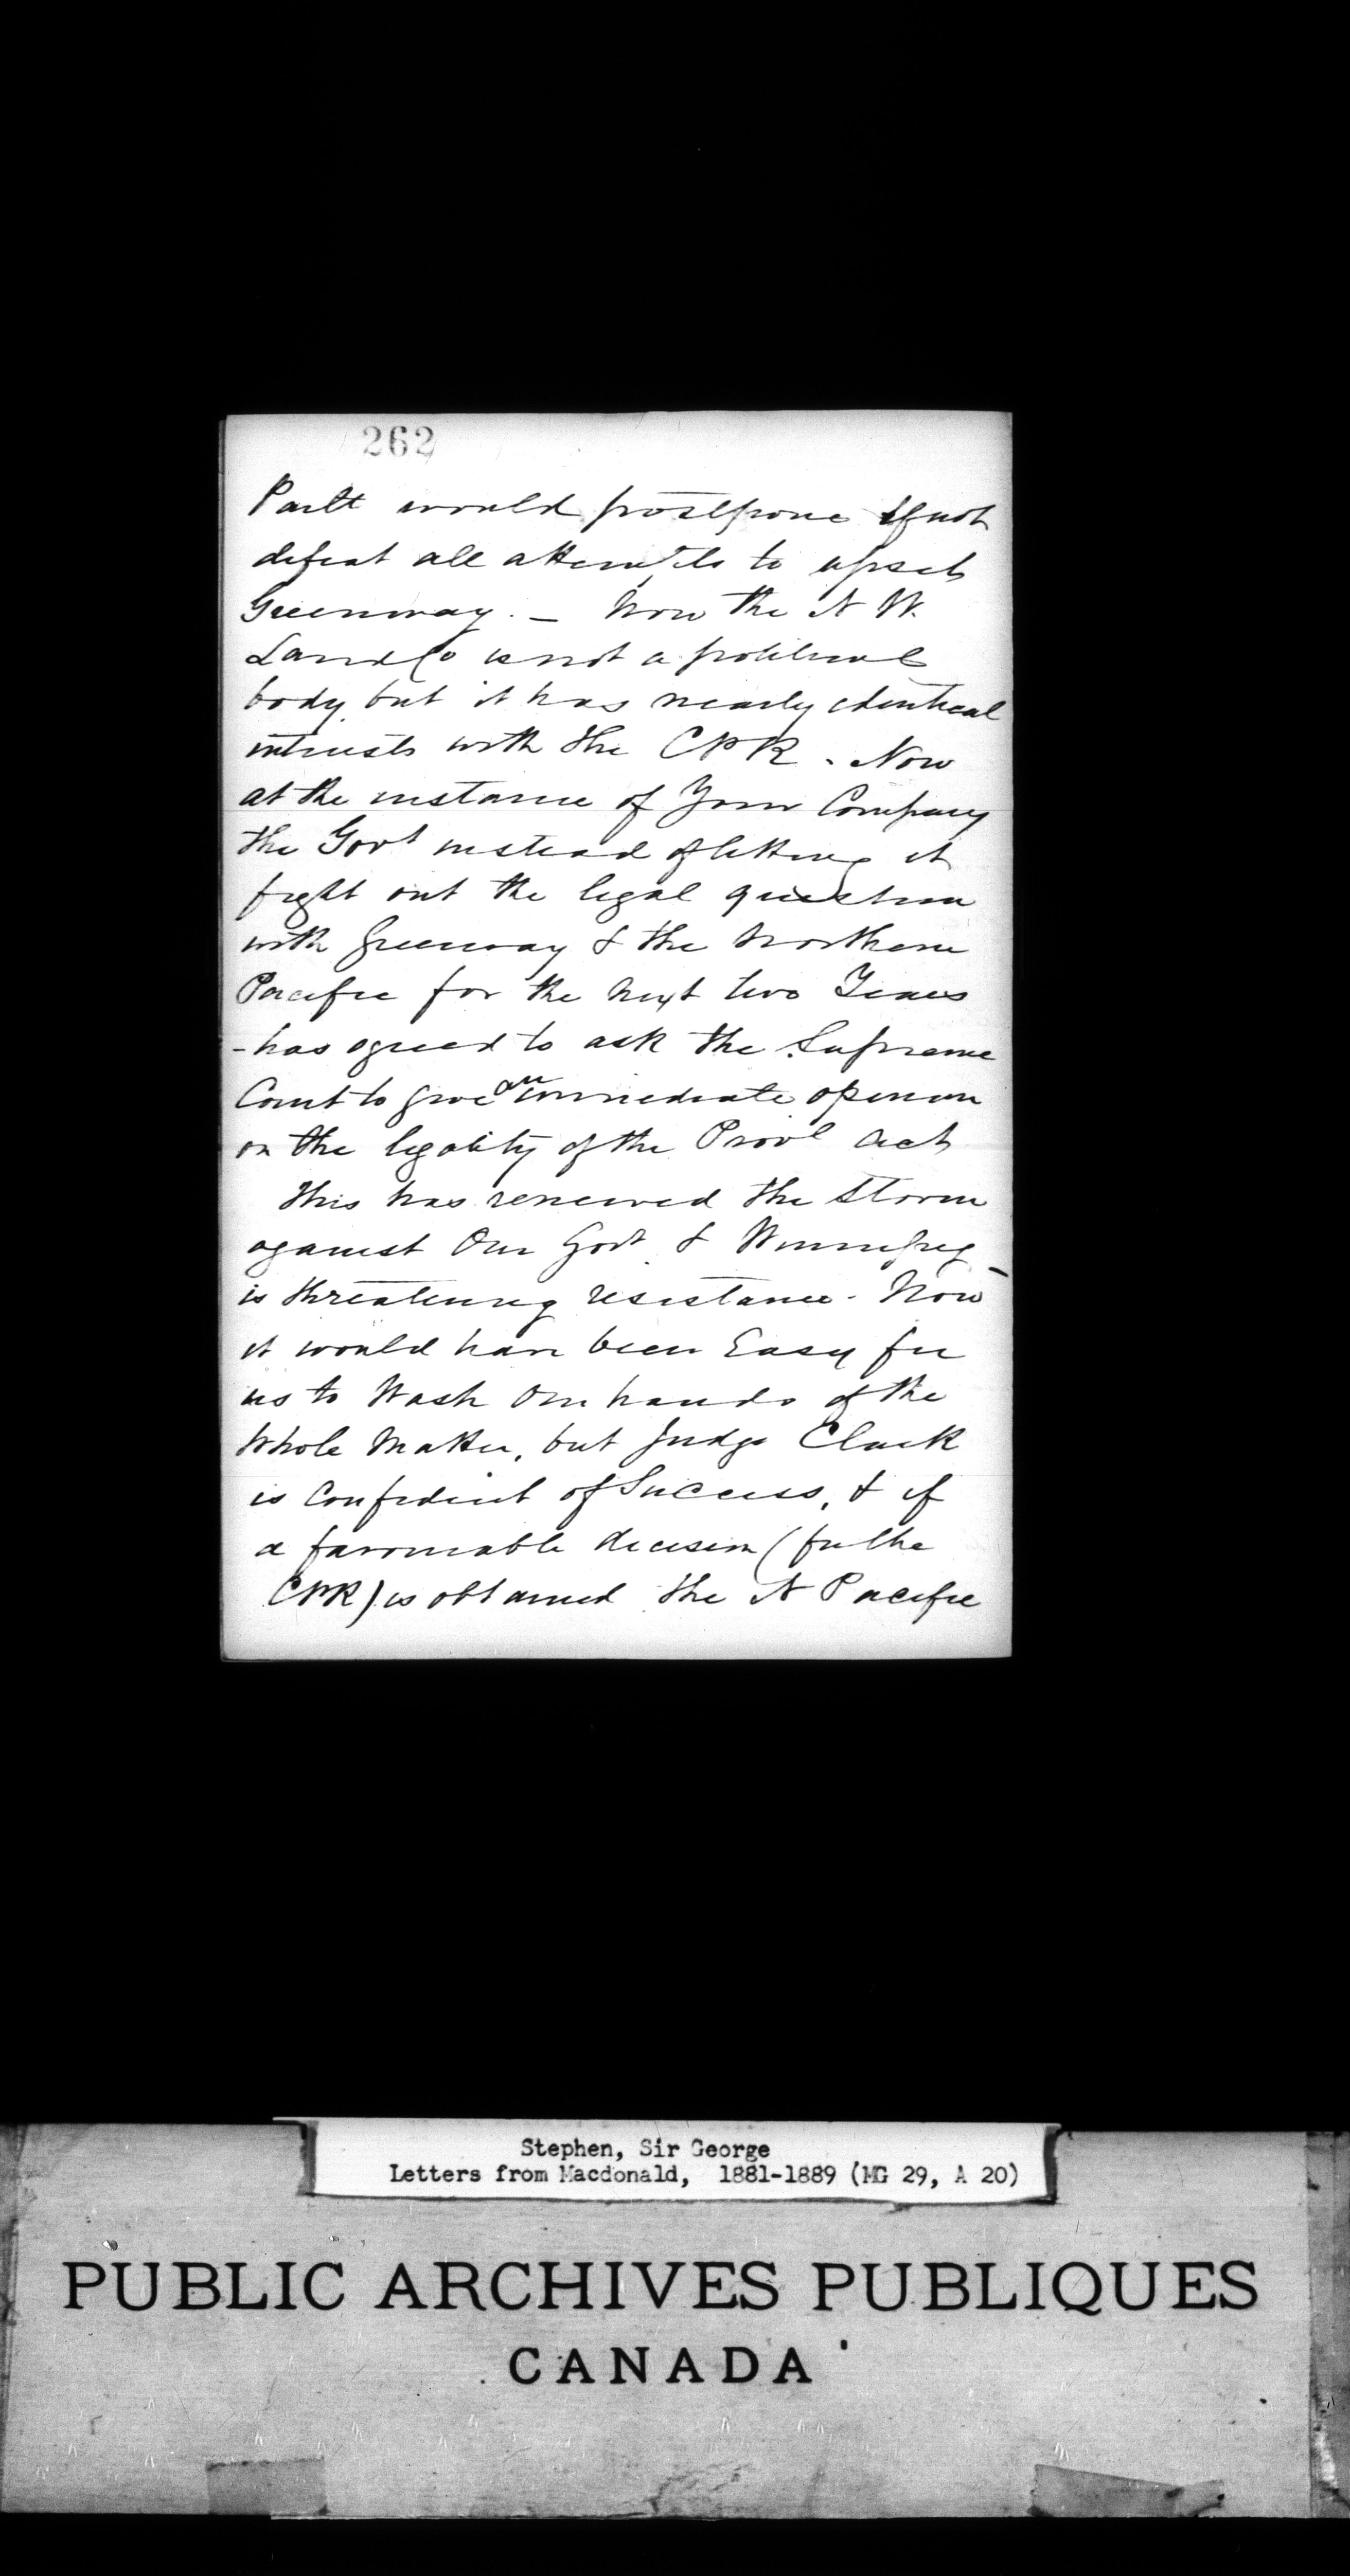 262
Parlt would postpone if not
defeat all attempts to upset
Greenway. – Now the N W.
Land Co is not a political
body, but it has nearly identical
interests with the CPR. Now
at the instance of Your Company
the Govt instead of letting it
fight out the legal question
with Greenway & the Northern
Pacific for the next two Years
- has agreed to ask the Supreme
Court to give an immediate opinion
on the legality of the Provl Act
This has renewed the storm
against Our Govt & Winnipeg –
is threatening resistance. Now
it would have been Easy for
us to Wash Our hands of the
Whole Matter, but Judge Clark
is Confident of Success, & if
a favourable decision (for the
CPR) is obtained the N Pacific
Stephen, Sir George
Letters from Macdonald, 1881-1889 (MG 29, A 20)
PUBLIC ARCHIVES PUBLIQUES
CANADA